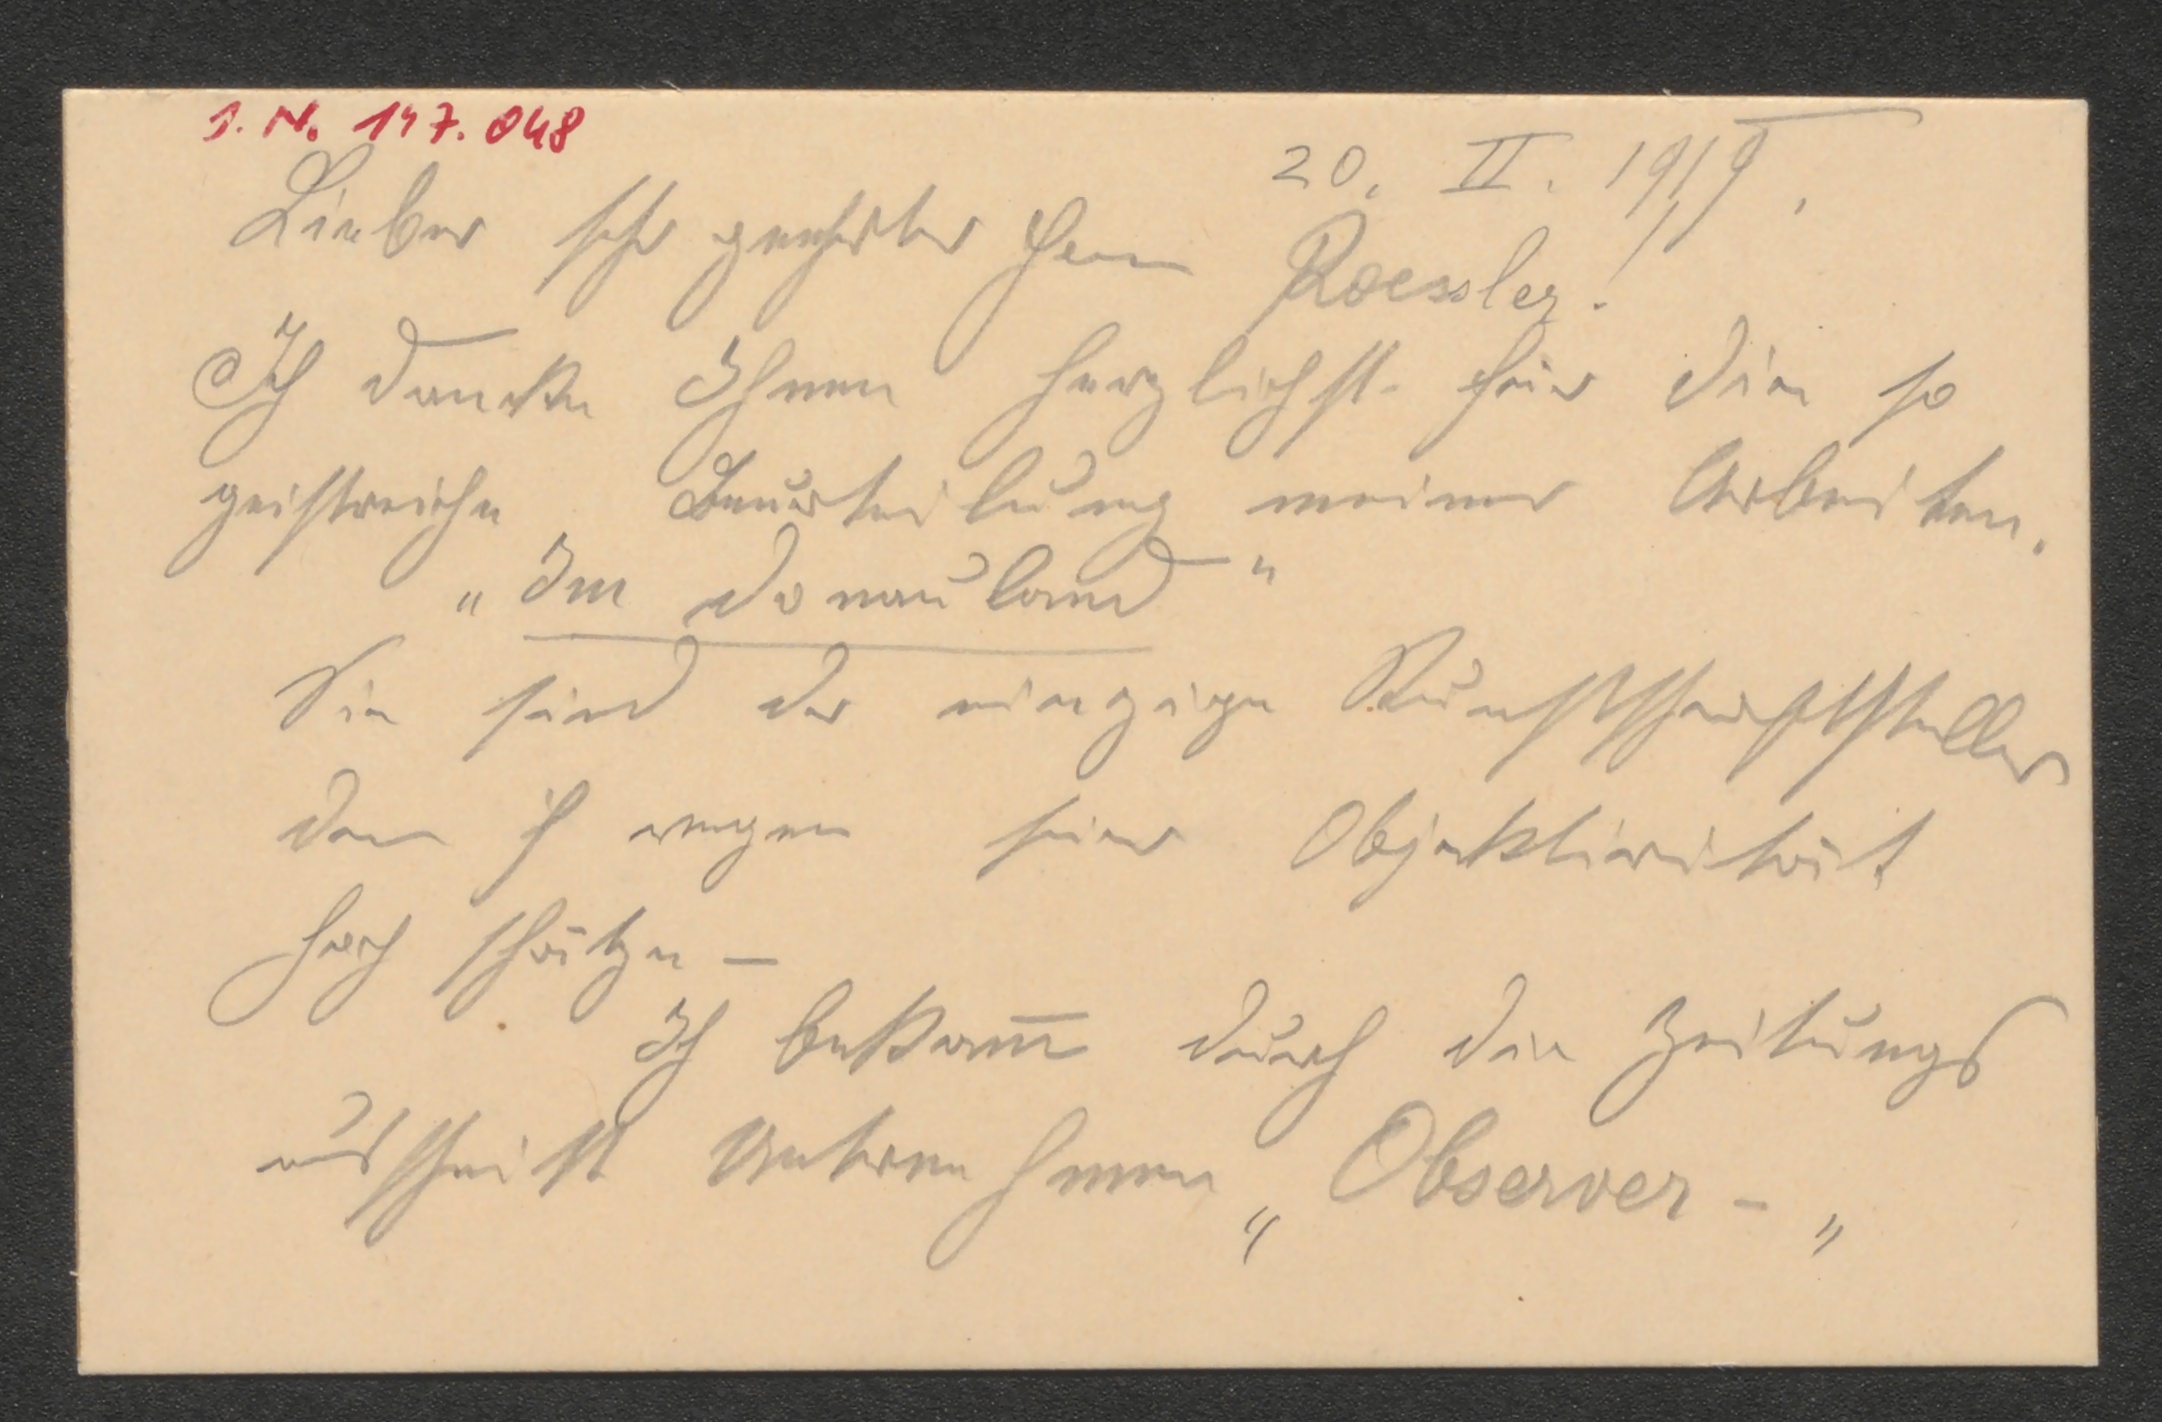 I. N. 147.048
20. II. 1919.
Lieber sehr geehrter Herr Roessler!
Ich dancke Ihnen herzlichst für die so
geistreiche Beurteilung meiner Arbeiten.
„Im Donauland"
Sie sind der einzige Kunstschriftsteller
den ich wegen seiner Objektivität
hoch schätze –
Ich bekam̅ durch die Zeitungs
ausschnitt Unternehmen „Observer – "